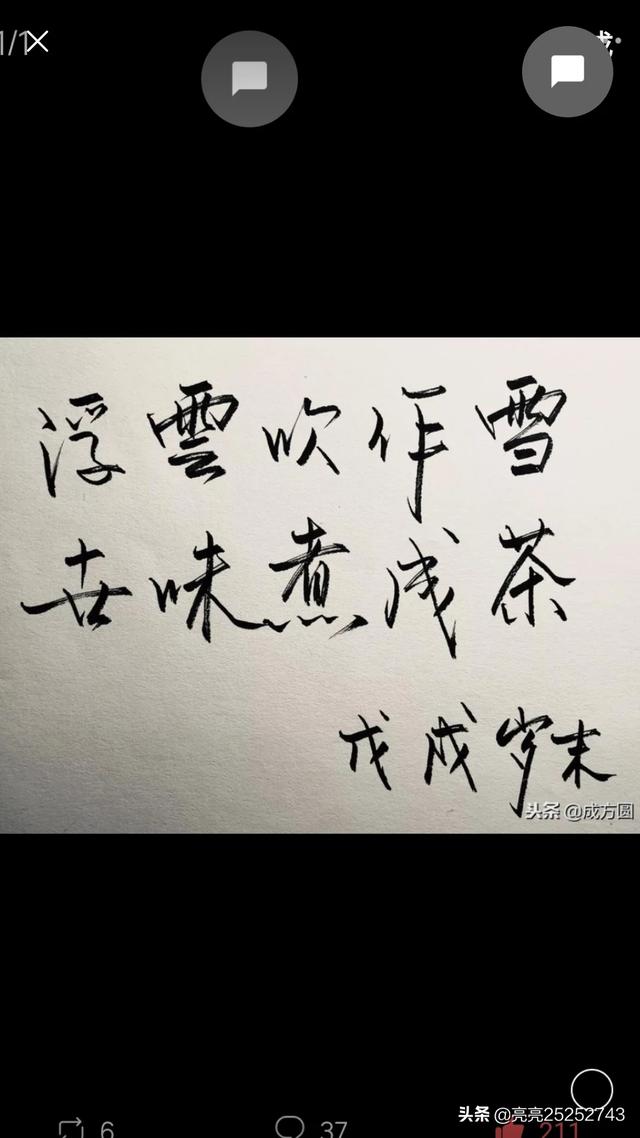 1/1
浮雲吹作雪
世味煮成茶
戊戌岁末
头条 @成方圆
头条 @亮亮25252743
6
37
211